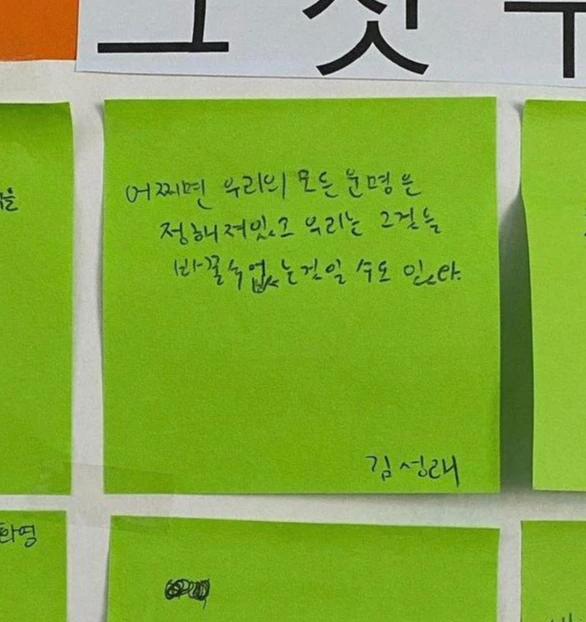 그것
어찌면 우리의 모든 운명은
정해져있고 우리는 그것을
바꿀수 없는것일 수도 있다.
김성래